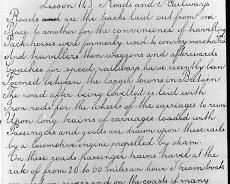 Lesson 143 Roads and Railways
Roads are the tracks laid out from one
Place to another for the convenience of travelling
Pack horses were formerly used to convey merchandise
And travellers then waggons and afterwards
coaches for speed, railways have recently been
formed between the larger towns in Britain
The road after being levelled is laid with
Iron rods for the wheels of the carriages to run
Upon long trains of carriages loaded with
Passengers and goods are drawn upon these rails
by a locomotive engine propelled by steam.
On these roads passenger trains travel at the
rate of from 20 to 60 miles an hour Steam boats
and on the coasts of many